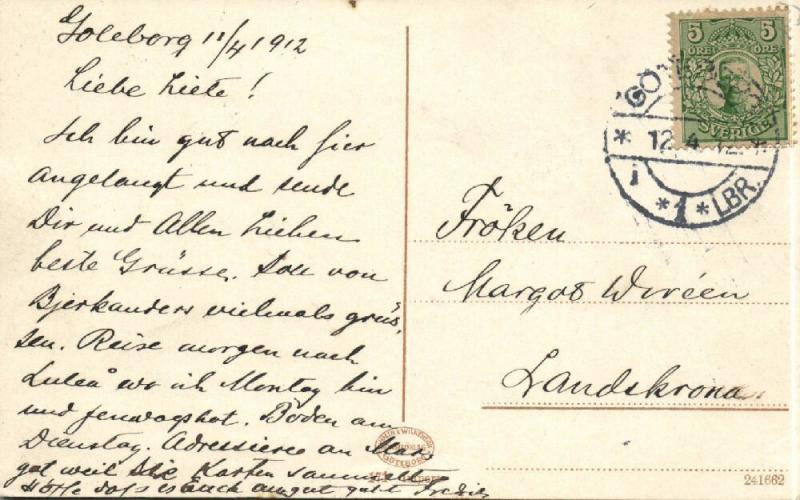 Goteborg 11/4 1912
Liebe Liete!
Ich bin gut nach hier
angelangt und sende
Dir und Allen Lieben
beste Grüsse. Soll von
Bjerkanders vielmals grüs-
sen. Reise morgen nach
Luleå wo ich Montag bin
und Boden am
Dienstag. Adressiere an Mar-
got weil sie Karten sammelt
Hoffe dass es Euch gut geht
5 5
ÖRE ÖRE
SVERIGE
12. 4. 12
*1* LBR.
Fröken
Margot Wiréen
Landskrona
GÖTEBORG
241662